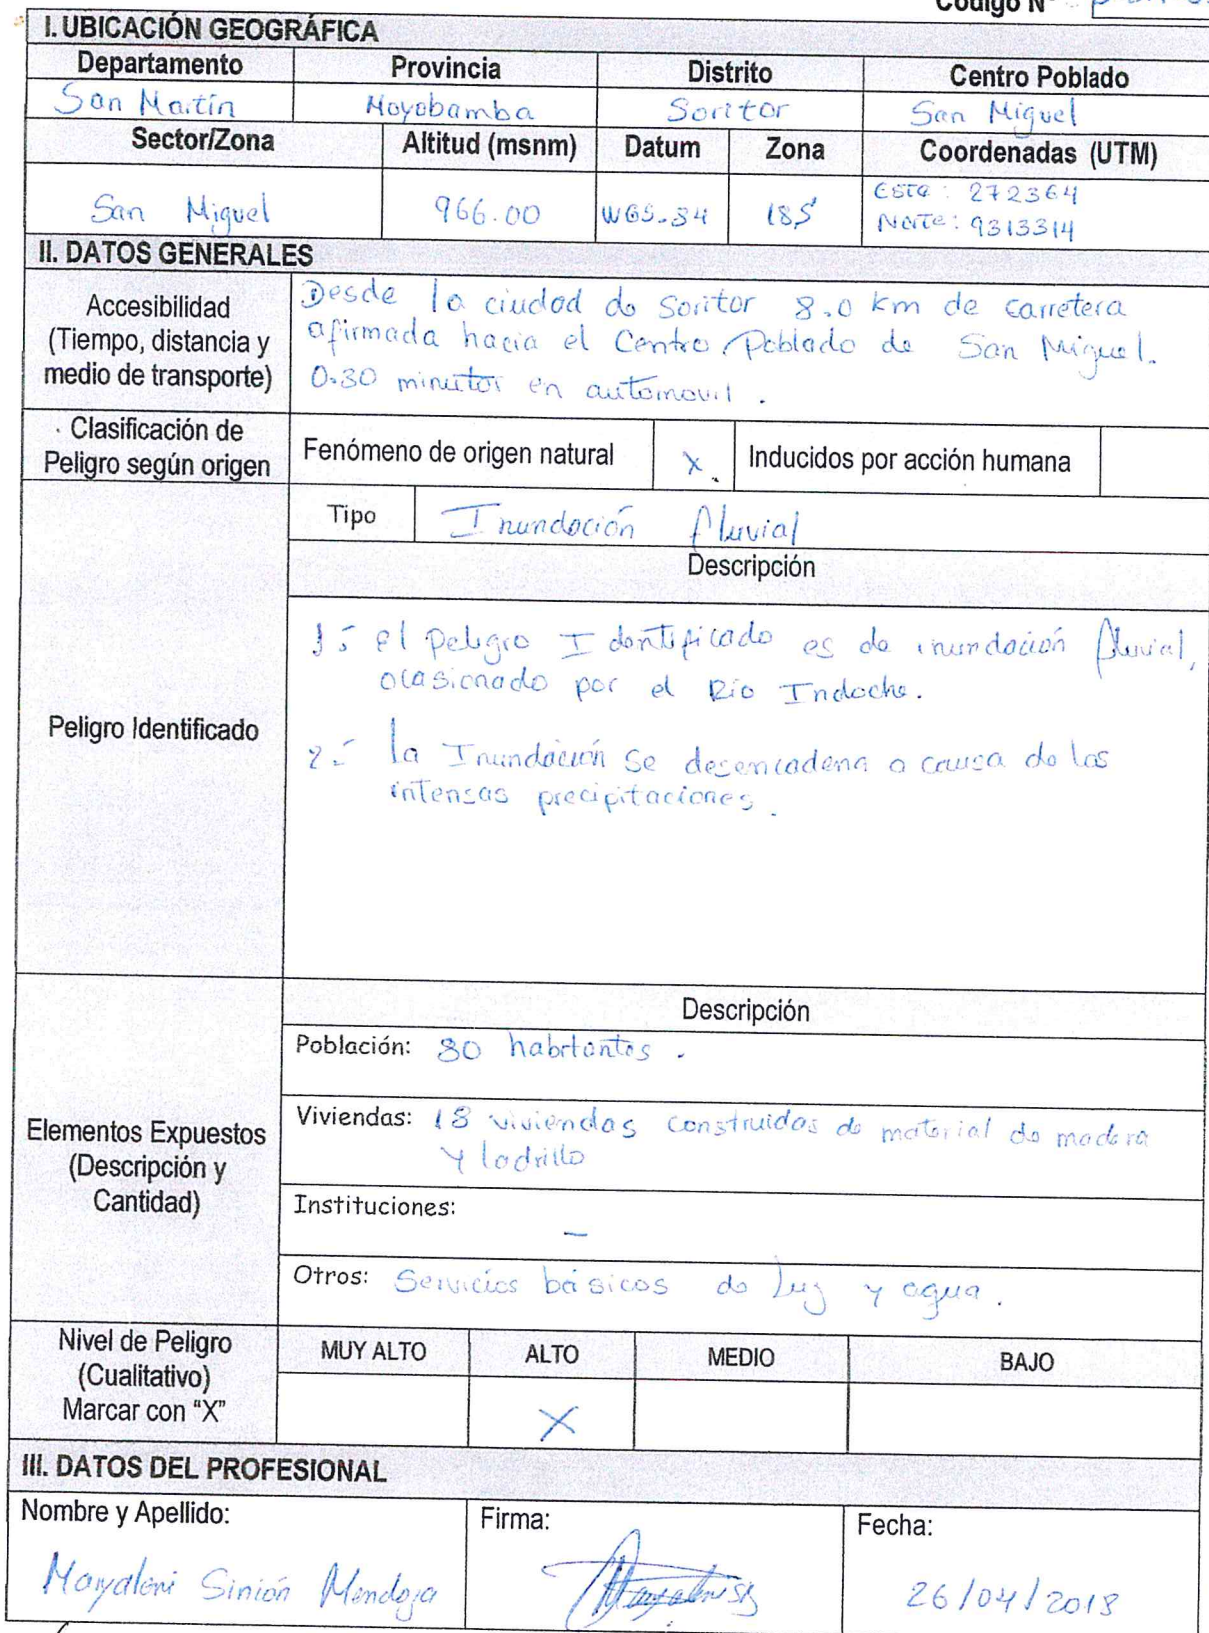 Código N°
I. UBICACIÓN GEOGRÁFICA
Departamento Provincia Distrito Centro Poblado
San Martín Moyobamba Soritor San Miguel
Sector/Zona Altitud (msnm) Datum Zona Coordenadas (UTM)
San Miguel 966.00 WGS-84 18S Este: 272364
Norte: 9313314
II. DATOS GENERALES
Accesibilidad
(Tiempo, distancia y
medio de transporte)
Desde la ciudad de Soritor 8.0 km de carretera
afirmada hacia el Centro Poblado de San Miguel.
0.30 minutos en automovil.
Clasificación de
Peligro según origen
Fenómeno de origen natural X Inducidos por acción humana
Peligro Identificado
Tipo Inundación fluvial
Descripción
1.- El peligro Identificado es de inundación fluvial,
ocasionado por el Río Indoche.
2.- la Inundación se desencadena a causa de las
intensas precipitaciones.
Elementos Expuestos
(Descripción y
Cantidad)
Descripción
Población: 80 habitantes.
Viviendas: 18 viviendas construidas de material de madera
y ladrillo
Instituciones:
-
Otros: Servicios básicos de luz y agua.
Nivel de Peligro
(Cualitativo)
Marcar con "X"
MUY ALTO ALTO MEDIO BAJO
X
III. DATOS DEL PROFESIONAL
Nombre y Apellido: Firma: Fecha:
Mayaleni Sinión Mendoza 26/04/2018